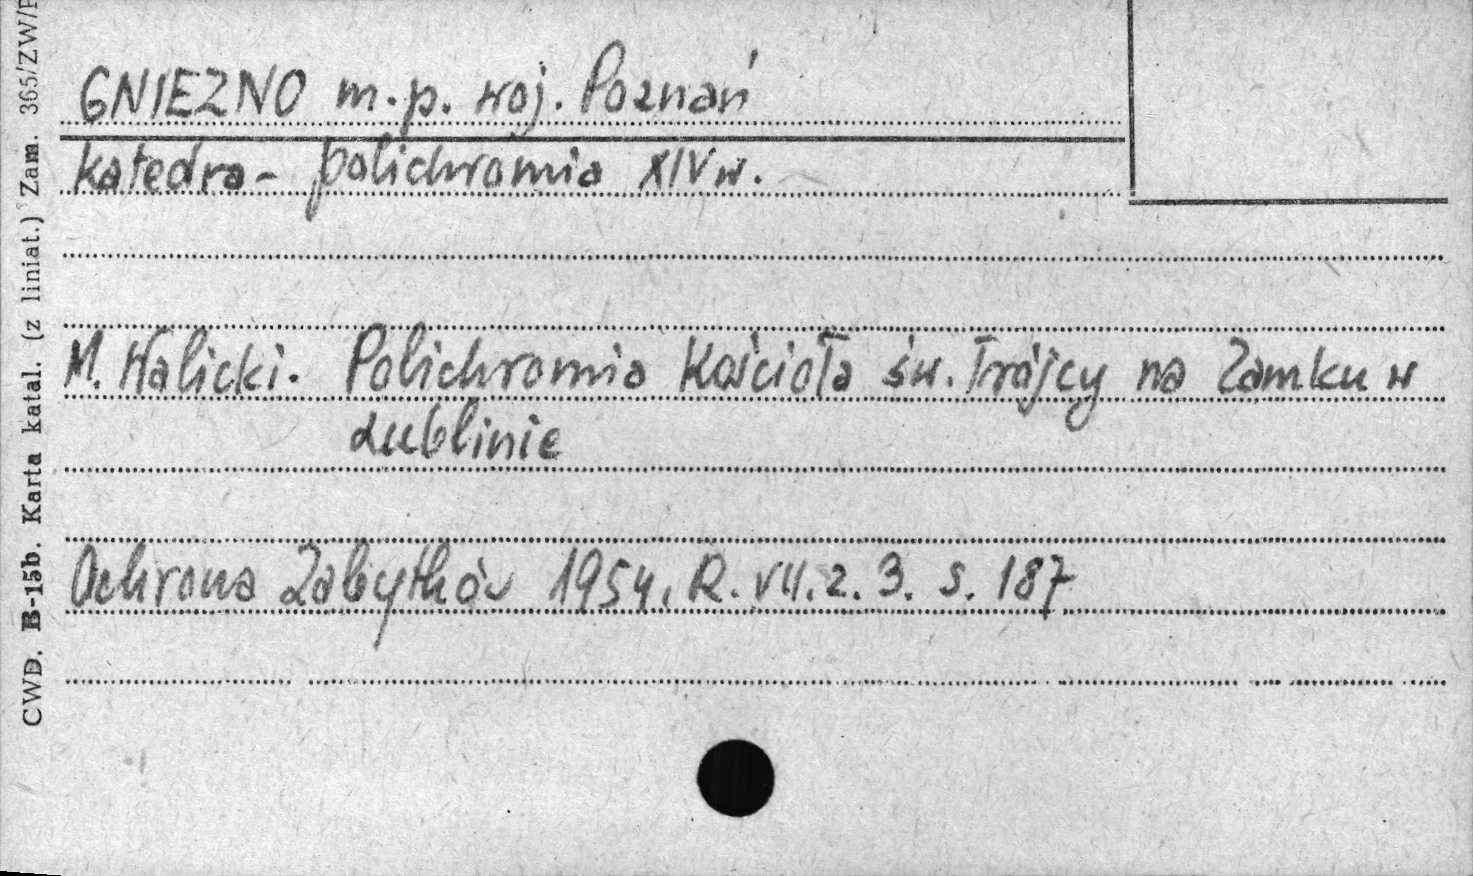 GNIEZNO m.p. woj. Poznań
katedra - polichromia XIV w.
M. Walicki. Polichromia Kościoła św. Trójcy na Zamku w
Lublinie
Ochrona Zabytków 1954. R. VII. z. 3. s. 187
CWD. B-15b. Karta katal. (z liniat.) Zam. 365/ZW/P